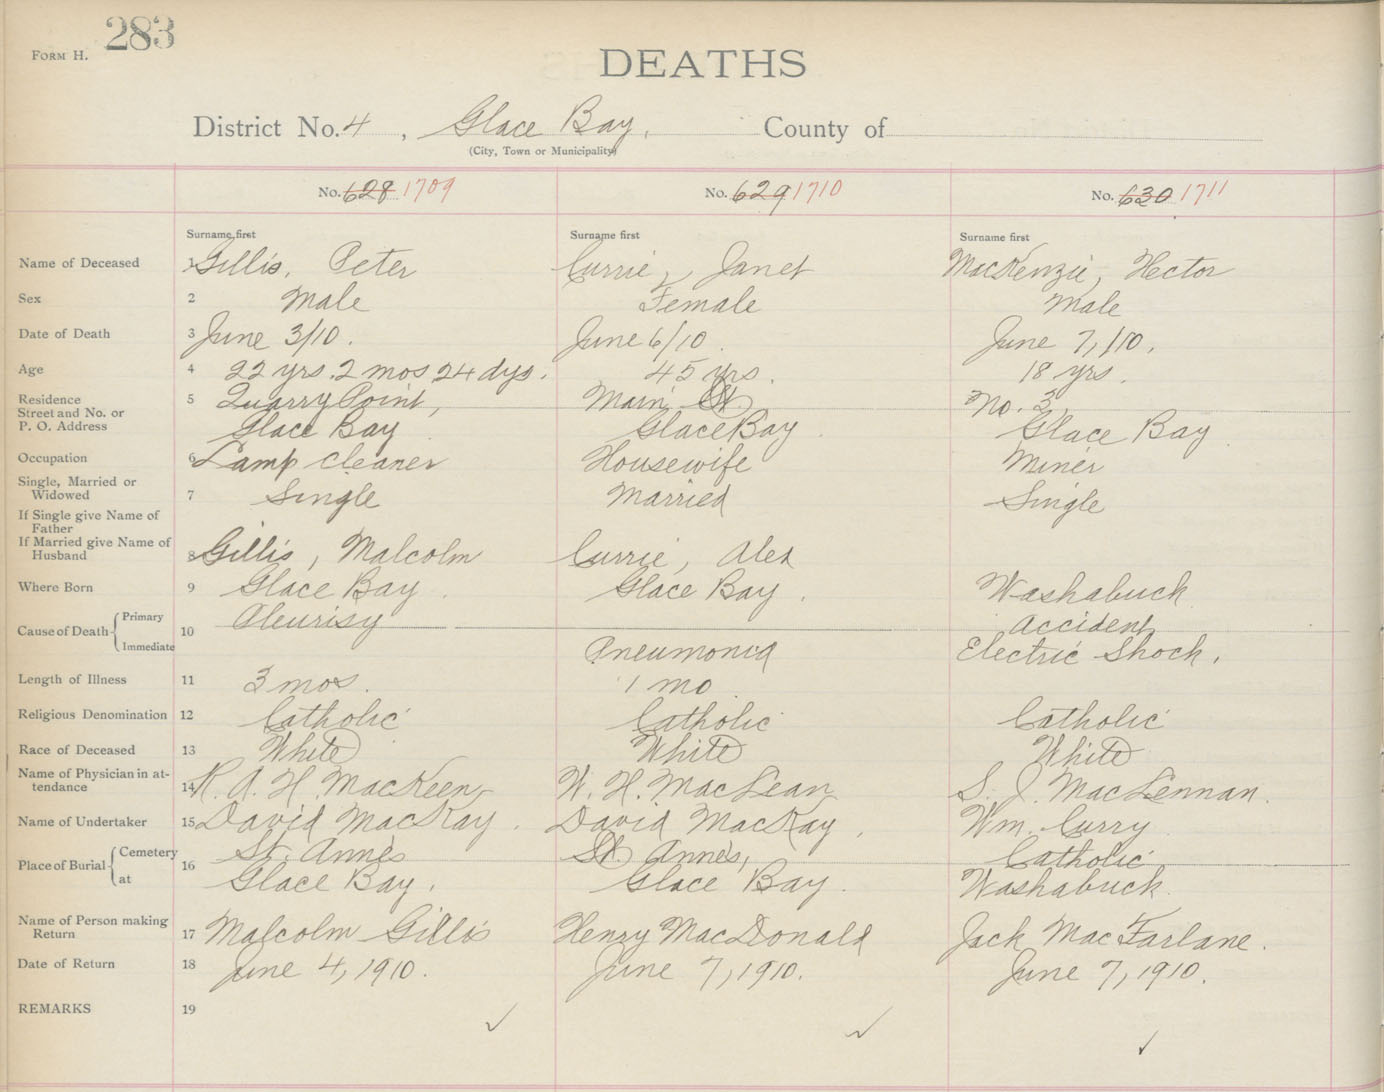 283
FORM H.
DEATHS
District No. 4, Glace Bay. County of
(City, Town or Municipality)
No. 628 1709 No. 629 1710 No. 630 1711
Surname first Surname first Surname first
Name of Deceased 1 Gillis, Peter Currie, Janet MacKenzie, Hector
Sex 2 Male Female Male
Date of Death 3 June 3/10. June 6/10. June 7,/10.
Age 4 22 yrs. 2 mos 24 dys. 45 yrs. 18 yrs.
Residence 5 Quarry Point, Main St. No. 3
Street and No. or
P. O. Address Glace Bay Glace Bay. Glace Bay.
Occupation 6 Lamp cleaner Housewife Miner
Single, Married or
Widowed 7 Single Married Single
If Single give Name of
Father
If Married give Name of
Husband 8 Gillis, Malcolm Currie, Alex
Where Born 9 Glace Bay. Glace Bay. Washabuck
Cause of Death Primary 10 Pleurisy Accident
Immediate Pneumonia Electric Shock.
Length of Illness 11 3 mos. 1 mo.
Religious Denomination 12 Catholic Catholic Catholic
Race of Deceased 13 White White White
Name of Physician in at-
tendance 14 R. A. H. MacKeen W. H. MacLean S. J. MacLennan.
Name of Undertaker 15 David MacKay. David MacKay. Wm. Curry
Place of Burial Cemetery 16 St. Anne's St. Anne's, Catholic
at Glace Bay. Glace Bay. Washabuck.
Name of Person making
Return 17 Malcolm Gillis Henry MacDonald Jack MacFarlane.
Date of Return 18 June 4, 1910. June 7, 1910. June 7, 1910.
REMARKS 19